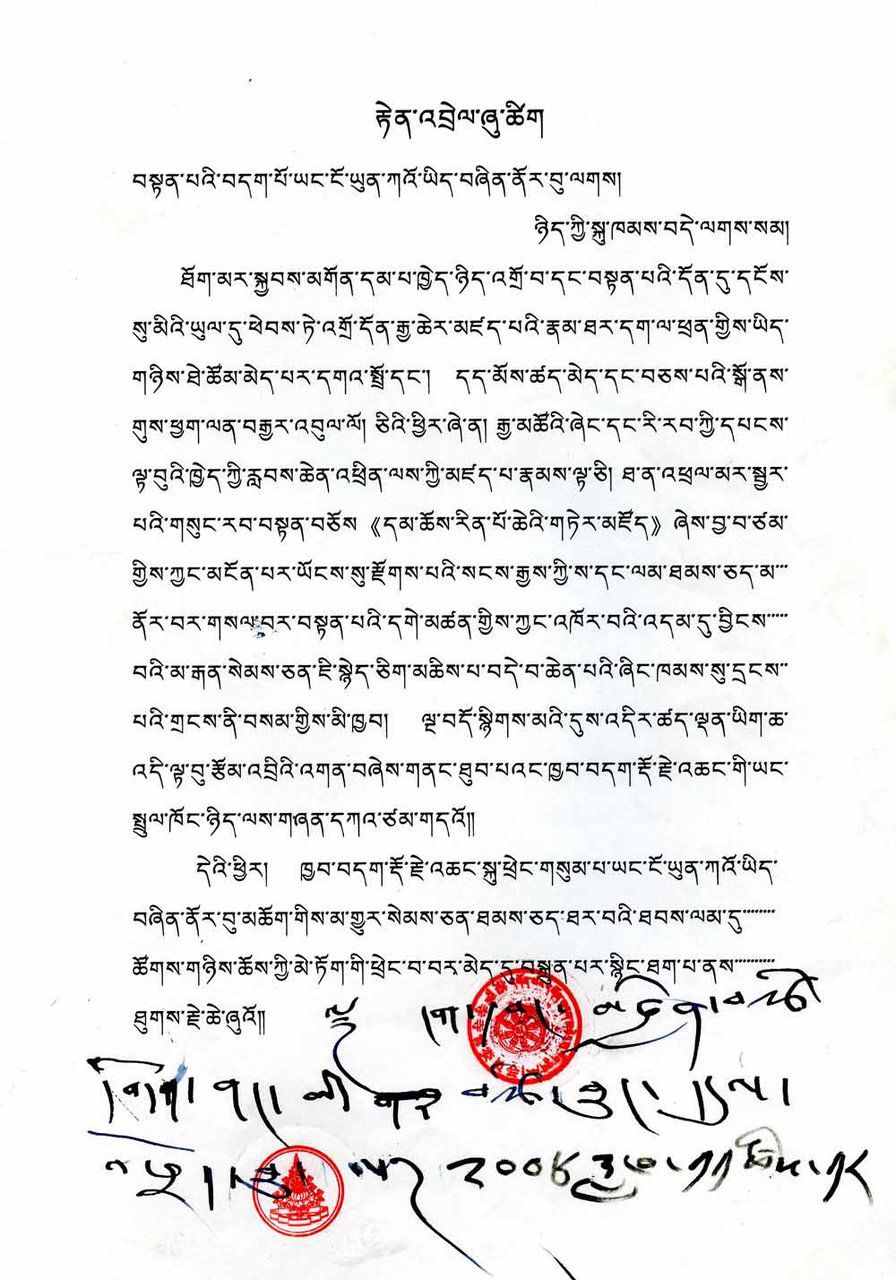 རྟེན་འབྲེལ་ཞུ་ཚིག
བསྟན་པའི་བདག་པོ་ཡང་ངོ་ཡུན་ཀའོ་ཡིད་བཞིན་ནོར་བུ་ལགས།
ཉིད་ཀྱི་སྐུ་ཁམས་བདེ་ལགས་སམ།
ཐོག་མར་སྐྱབས་མགོན་དམ་པ་ཁྱེད་ཉིད་འགྲོ་བ་དང་བསྟན་པའི་དོན་དུ་དངོས་
སུ་མིའི་ཡུལ་དུ་ཕེབས་ཏེ་འགྲོ་དོན་རྒྱ་ཆེར་མཛད་པའི་རྣམ་ཐར་དག་ལ་ཕྲན་གྱིས་ཡིད་
གཉིས་ཐེ་ཚོམ་མེད་པར་དགའ་སྤྲོ་དང་། དད་མོས་ཚད་མེད་དང་བཅས་པའི་སྒོ་ནས་
གུས་ཕྱག་ལན་བརྒྱར་འབུལ་ལོ། ཅིའི་ཕྱིར་ཞེ་ན། རྒྱ་མཚོའི་ཞེང་དང་རི་རབ་ཀྱི་དཔངས་
ལྟ་བུའི་ཁྱེད་ཀྱི་རླབས་ཆེན་འཕྲིན་ལས་ཀྱི་མཛད་པ་རྣམས་ལྟ་ཅི། ཐ་ན་འཕྲལ་མར་སྦྱར་
པའི་གསུང་རབ་བསྟན་བཅོས 《དམ་ཆོས་རིན་པོ་ཆེའི་གཏེར་མཛོད》 ཞེས་བྱ་བ་ཙམ་
གྱིས་ཀྱང་མངོན་པར་ཡོངས་སུ་རྫོགས་པའི་སངས་རྒྱས་ཀྱི་ས་དང་ལམ་ཐམས་ཅད་མ་…
ནོར་བར་གསལ་བར་བསྟན་པའི་དགེ་མཚན་གྱིས་ཀྱང་འཁོར་བའི་འདམ་དུ་བྱིངས་……
བའི་མ་རྒན་སེམས་ཅན་ཇི་སྙེད་ཅིག་མཆིས་པ་བདེ་བ་ཆེན་པའི་ཞིང་ཁམས་སུ་དྲངས་…
པའི་གྲངས་ནི་བསམ་གྱིས་མི་ཁྱབ། ལྔ་བདོ་སྙིགས་མའི་དུས་འདིར་ཚད་ལྡན་ཡིག་ཆ་
འདི་ལྟ་བུ་རྩོམ་འབྲིའི་འགན་བཞེས་གནང་ཐུབ་པའང་ཁྱབ་བདག་རྡོ་རྗེ་འཆང་གི་ཡང་
སྤྲུལ་ཁོང་ཉིད་ལས་གཞན་དཀའ་ཙམ་གདའོ།།
དེའི་ཕྱིར། ཁྱབ་བདག་རྡོ་རྗེ་འཆང་སྐུ་ཕྲེང་གསུམ་པ་ཡང་ངོ་ཡུན་ཀའོ་ཡིད་
བཞིན་ནོར་བུ་མཆོག་གིས་མ་གྱུར་སེམས་ཅན་ཐམས་ཅད་ཐར་བའི་ཐབས་ལམ་དུ་………
ཚོགས་གཉིས་ཆོས་ཀྱི་མེ་ཏོག་གི་ཕྲེང་བ་བར་མེད་དུ་བསྒྲུན་པར་སྙིང་ཐག་པ་ནས་………
ཐུགས་རྗེ་ཆེ་ཞུའོ།།